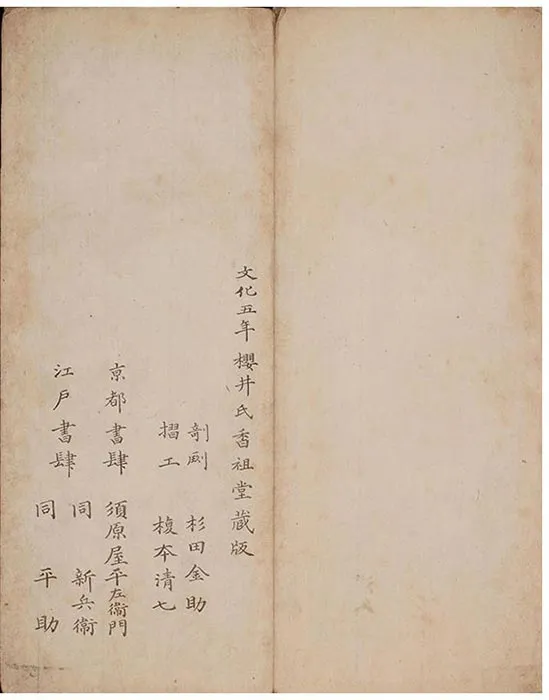 文化五年櫻井氏香祖堂蔵版
剞劂 杉田金助
摺工 榎本清七
京都書肆 須原屋平左衞門
江戸書肆 同 新兵衞
同 平助